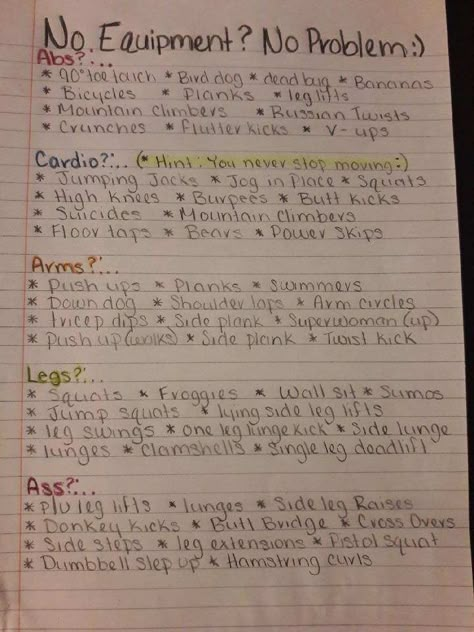 No Equipment? No Problem:)
Abs?:...
* 90° toe touch * Bird dog * dead bug * Bananas
* Bicycles * Planks * leg lifts
* Mountain Climbers * Russian Twists
* Crunches * flutter kicks * V-ups
Cardio?:... (* Hint: You never stop moving:)
* Jumping Jacks * Jog in Place * Squats
* High Knees * Burpees * Butt Kicks
* Suicides * Mountain Climbers
* Floor taps * Bears * Power Skips
Arms?:...
* Push ups * Planks * Swimmers
* Down dog * Shoulder taps * Arm circles
* tricep dips * Side plank * Superwoman (up)
* Push up (walks) * Side plank * Twist Kick
Legs?:...
* Squats * Froggies * Wall sit * Sumos
* Jump squats * lying side leg lifts
* leg swings * one leg lunge kick * Side lunge
* lunges * Clamshells * Single leg deadlift
Ass?:...
* Plu leg lifts * lunges * Side leg Raises
* Donkey Kicks * Butt Bridge * Cross Overs
* Side steps * leg extensions * Pistol Squat
* Dumbbell step up * Hamstring curls